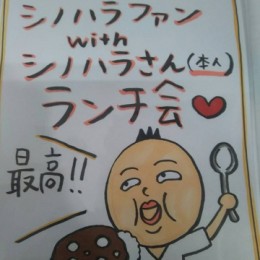 シノハラファン
with
シノハラさん(本人)
ランチ会
最高!!